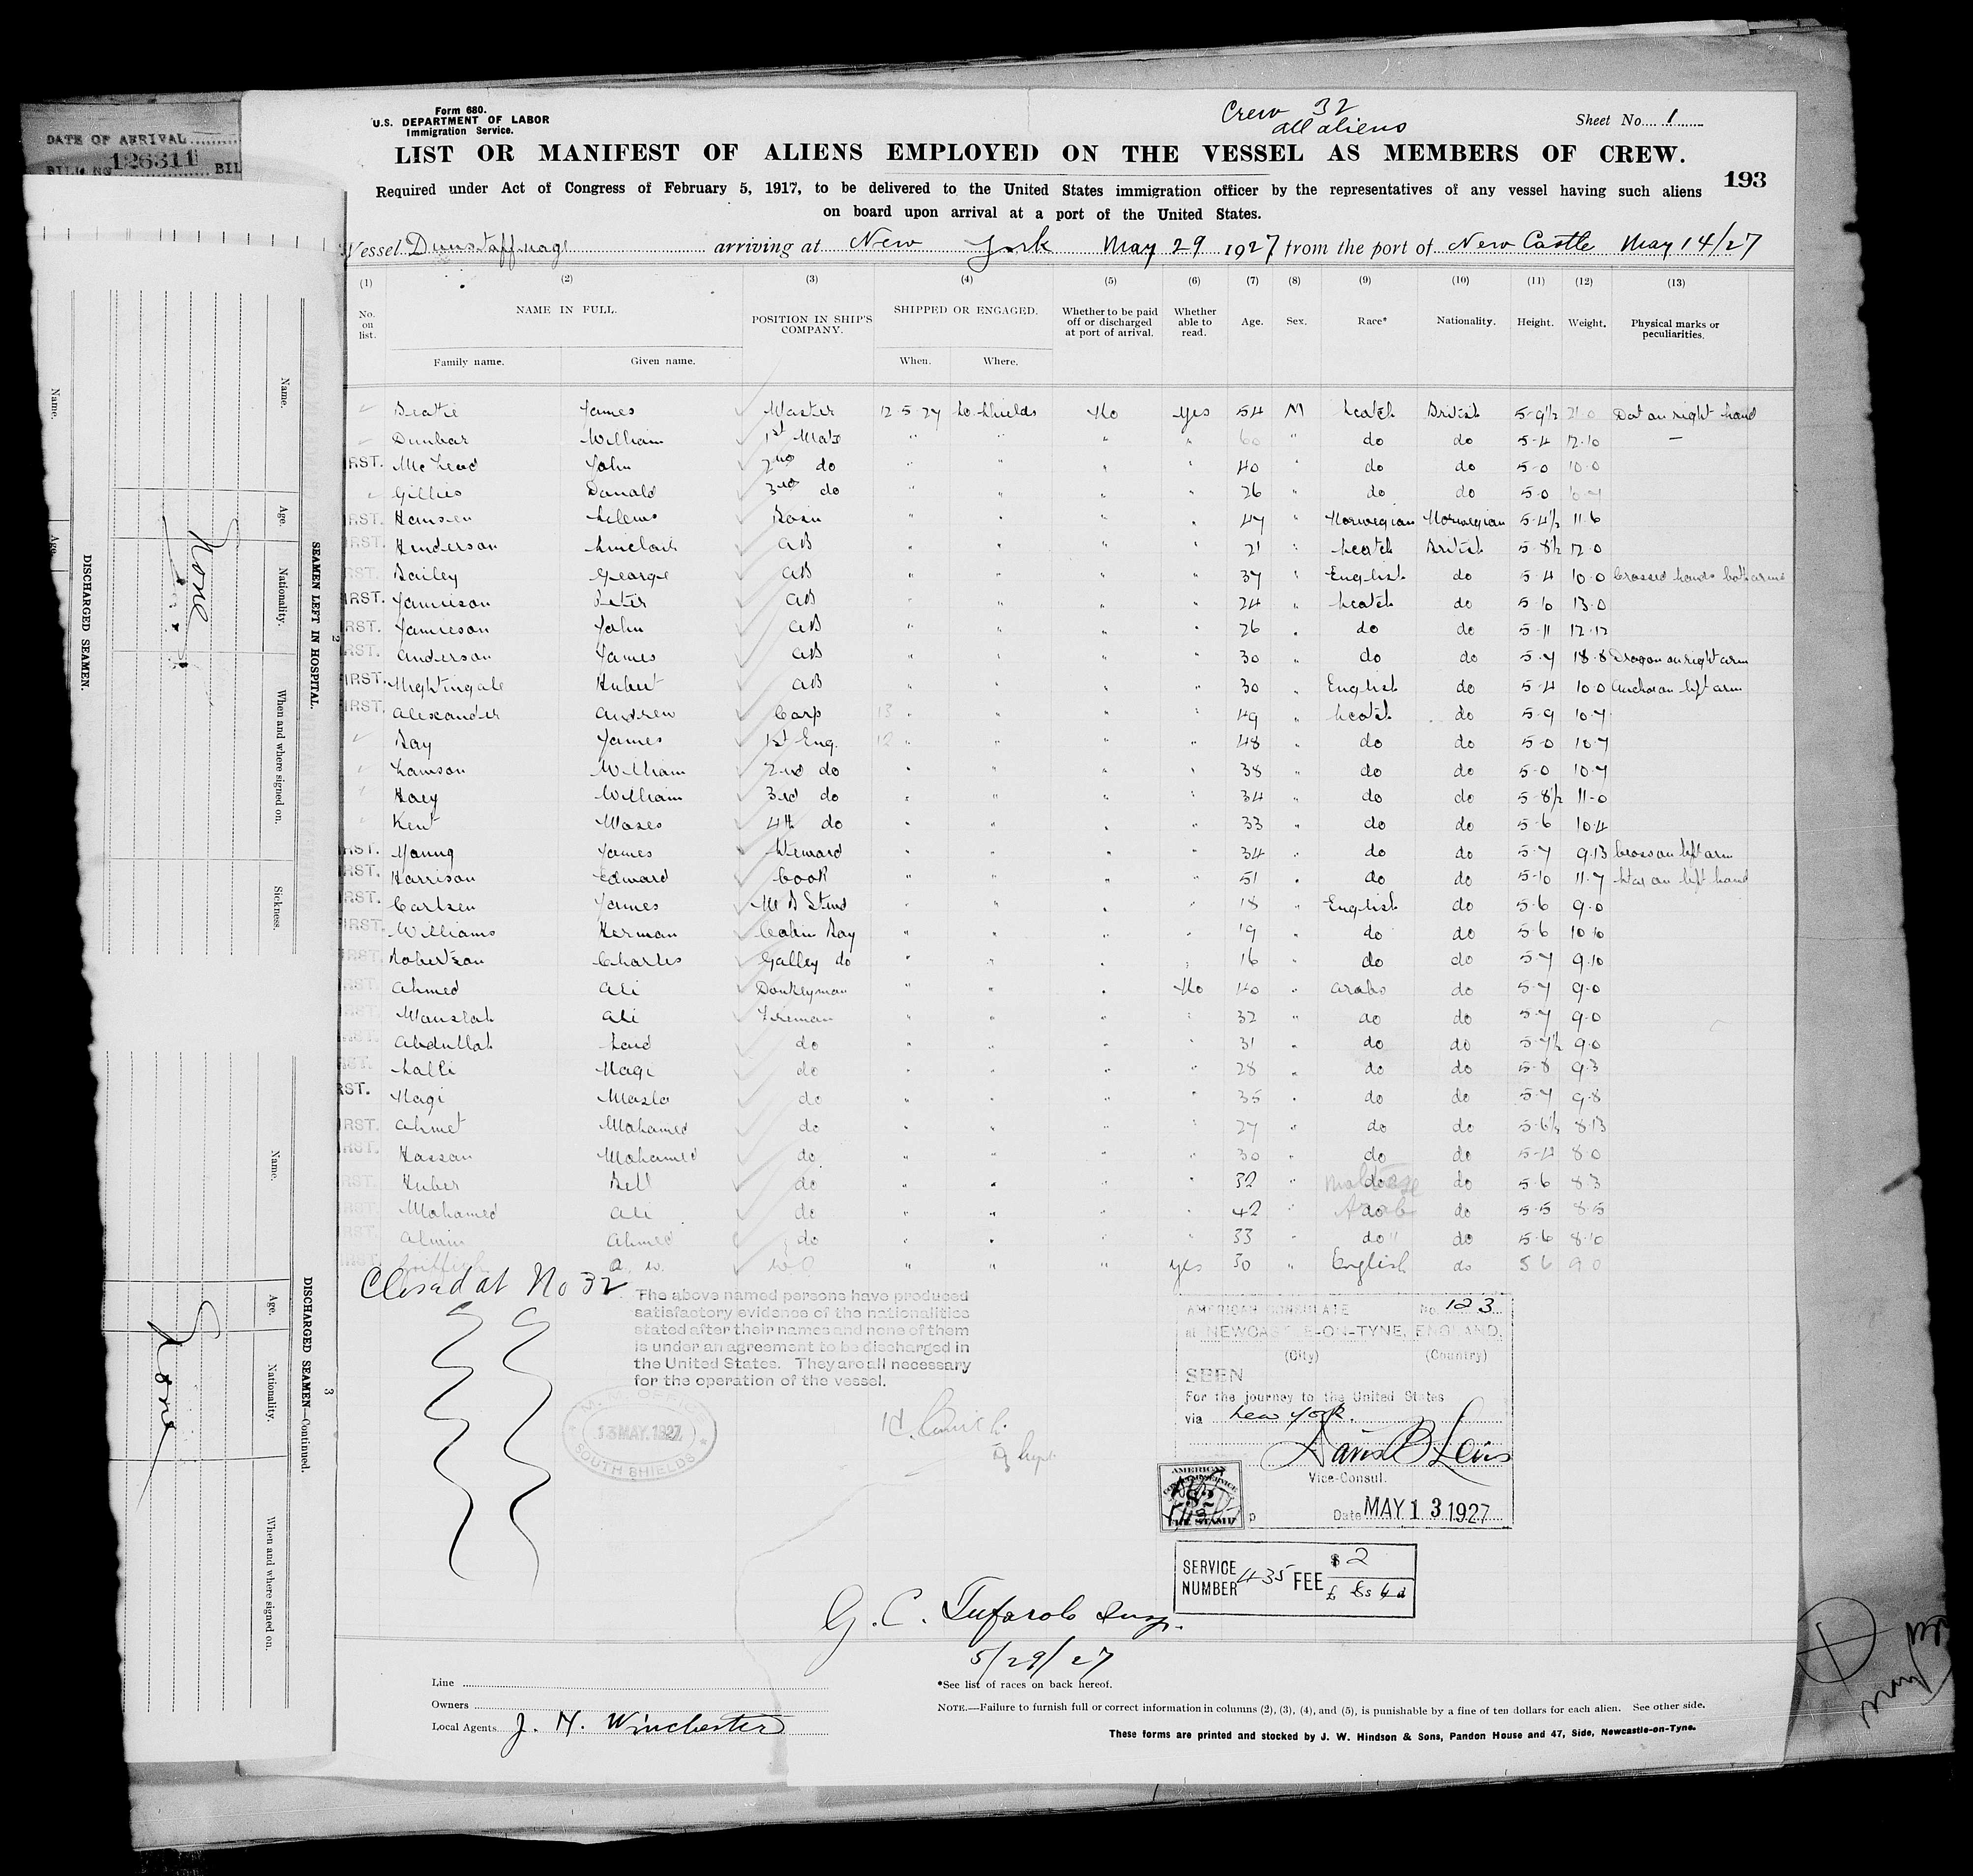 Form 680.
U.S. DEPARTMENT OF LABOR
Immigration Service.
Crew 32
all aliens
Sheet No. 1
DATE OF ARRIVAL
BILL NO 126311 BIL
LIST OR MANIFEST OF ALIENS EMPLOYED ON THE VESSEL AS MEMBERS OF CREW.
193
Required under Act of Congress of February 5, 1917, to be delivered to the United States immigration officer by the representatives of any vessel having such aliens
on board upon arrival at a port of the United States.
Vessel Dunstaffnage arriving at New York May 29 1927 from the port of New Castle May 14/27
(1) (2) (3) (4) (5) (6) (7) (8) (9) (10) (11) (12) (13)
No. on list. NAME IN FULL. POSITION IN SHIP'S COMPANY. SHIPPED OR ENGAGED. Whether to be paid off or discharged at port of arrival. Whether able to read. Age. Sex. Race* Nationality. Height. Weight. Physical marks or peculiarities.
Family name. Given name. When. Where.
Beattie James Master 12 5 27 So. Shields No Yes 54 M Scotch British 5-9½ Dot on right hand
Dunbar William 1st Mate " " " " 60 " do do 5-4 12.10 —
McLeod John 2nd do " " " " 40 " do do 5-0 10-0
Gillies Donald 3rd do " " " " 26 " do do 5-0
Hansen Bosn " " " " 47 " Norwegian Norwegian 5-4½ 11.6
Henderson Sinclair AB " " " " 21 " Scotch British 5-8½ 12.0
Bailey George AB " " " " 37 " English do 5-4 10.0 Crossed hands both arms
Jamieson Peter AB " " " " 24 " Scotch do 5-10 13.0
Jamieson John AB " " " " 26 " do do 5-11 12.12
Anderson James AB " " " " 30 " do do 5-7 18.8 Dragon on right arm
Nightingale Hubert AB " " " " 30 " English do 5-4 10.0 Anchor on left arm
Alexander Andrew Carp 13 " " " " 49 " Scotch do 5-9 10.7
Bay James 1st Eng. 12 " " " " 48 " do do 5-0 10.7
Lawson William 2nd do " " " " 38 " do do 5-0 10.7
Hoey William 3rd do " " " " 34 " do do 5-8½ 11-0
Kent Moses 4th do " " " " 33 " do do 5-6 10.4
Young James Steward " " " " 34 " do do 5-7 9.13 Cross on left arm
Harrison Edward Cook " " " " 51 " do do 5-10 11.7 Star on left hand
Carlsen James M R Stwd " " " " 18 " English do 5-6 9.0
Williams Herman Cabin Boy " " " " 19 " do do 5-6 10 10
Robertson Charles Galley do " " " " 16 " do do 5-7 9.10
Ahmed Ali Donkeyman " " " No 40 " Arabs do 5-7 9.0
Ali Fireman " " " " 32 " do do 5-7 9.0
Abdullah Said do " " " " 31 " do do 5-7½ 9.0
Salli Nagi do " " " " 28 " do do 5-8 9.3
Nagi do " " " " 35 " do do 5-7 9.8
Ahmet Mohamed do " " " " 27 " do do 5-6½ 8.13
Hassan Mohamed do " " " " 30 " do do 5-4 8.0
Huber Bell do " " " " 32 " Maltese do 5-6 8.3
Mohamed Ali do " " " " 42 " Arab do 5-5 8.5
Ahmed do " " " " 33 " do " do 5-6 8-10
Griffith A. W. W.O " " " yes 30 " English do 5 6 9 0
Closed at No 32
The above named persons have produced
satisfactory evidence of the nationalities
stated after their names and none of them
is under an agreement to be discharged in
the United States. They are all necessary
for the operation of the vessel.
M.M. OFFICE
13 MAY. 1927
SOUTH SHIELDS
AMERICAN CONSULATE No. 123
at NEWCASTLE-ON-TYNE, ENGLAND.
(City) (Country)
SEEN
For the journey to the United States
via New York.
Vice-Consul.
Date MAY 13 1927
AMERICAN
$2
FEE STAMP
SERVICE NUMBER 435 FEE $ 2
£ 8s 4d
G. C. Tufarolo Insp.
5/29/27
Line
Owners
Local Agents J. H. Winchester
*See list of races on back hereof.
NOTE.—Failure to furnish full or correct information in columns (2), (3), (4), and (5), is punishable by a fine of ten dollars for each alien. See other side.
These forms are printed and stocked by J. W. Hindson & Sons, Pandon House and 47, Side, Newcastle-on-Tyne.
SEAMEN LEFT IN HOSPITAL.
Name. Age. Nationality. When and where signed on. Sickness.
None
DISCHARGED SEAMEN.
Name. Age.
DISCHARGED SEAMEN—Continued.
3
Name. Age. Nationality. When and where signed on.
None